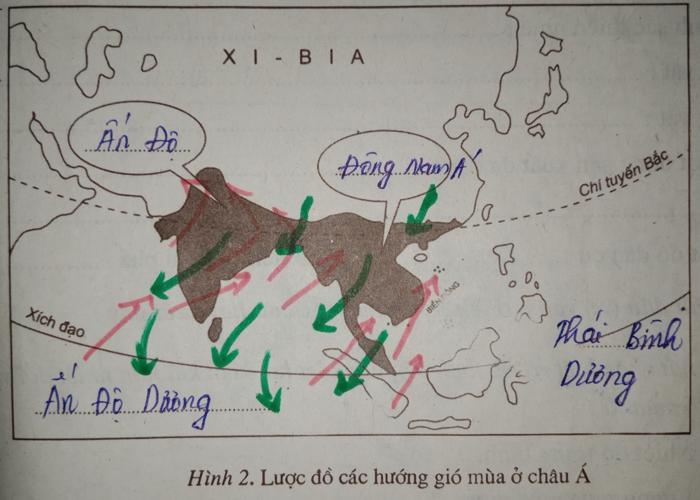 XI-BIA
Ấn Độ
Đông Nam Á
Chí tuyến Bắc
BIỂN ĐÔNG
Xích đạo
Thái Bình
Dương
Ấn Độ Dương
Hình 2. Lược đồ các hướng gió mùa ở châu Á